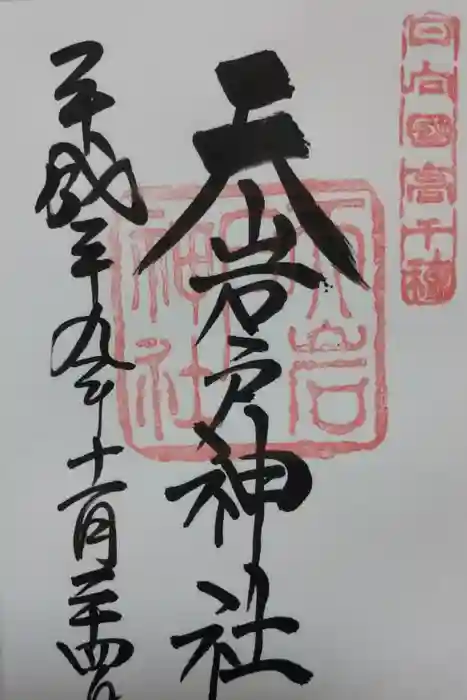 日向國高千穂
天岩戸神社
天岩
戸
神社
平成二十九年十一月二十四日